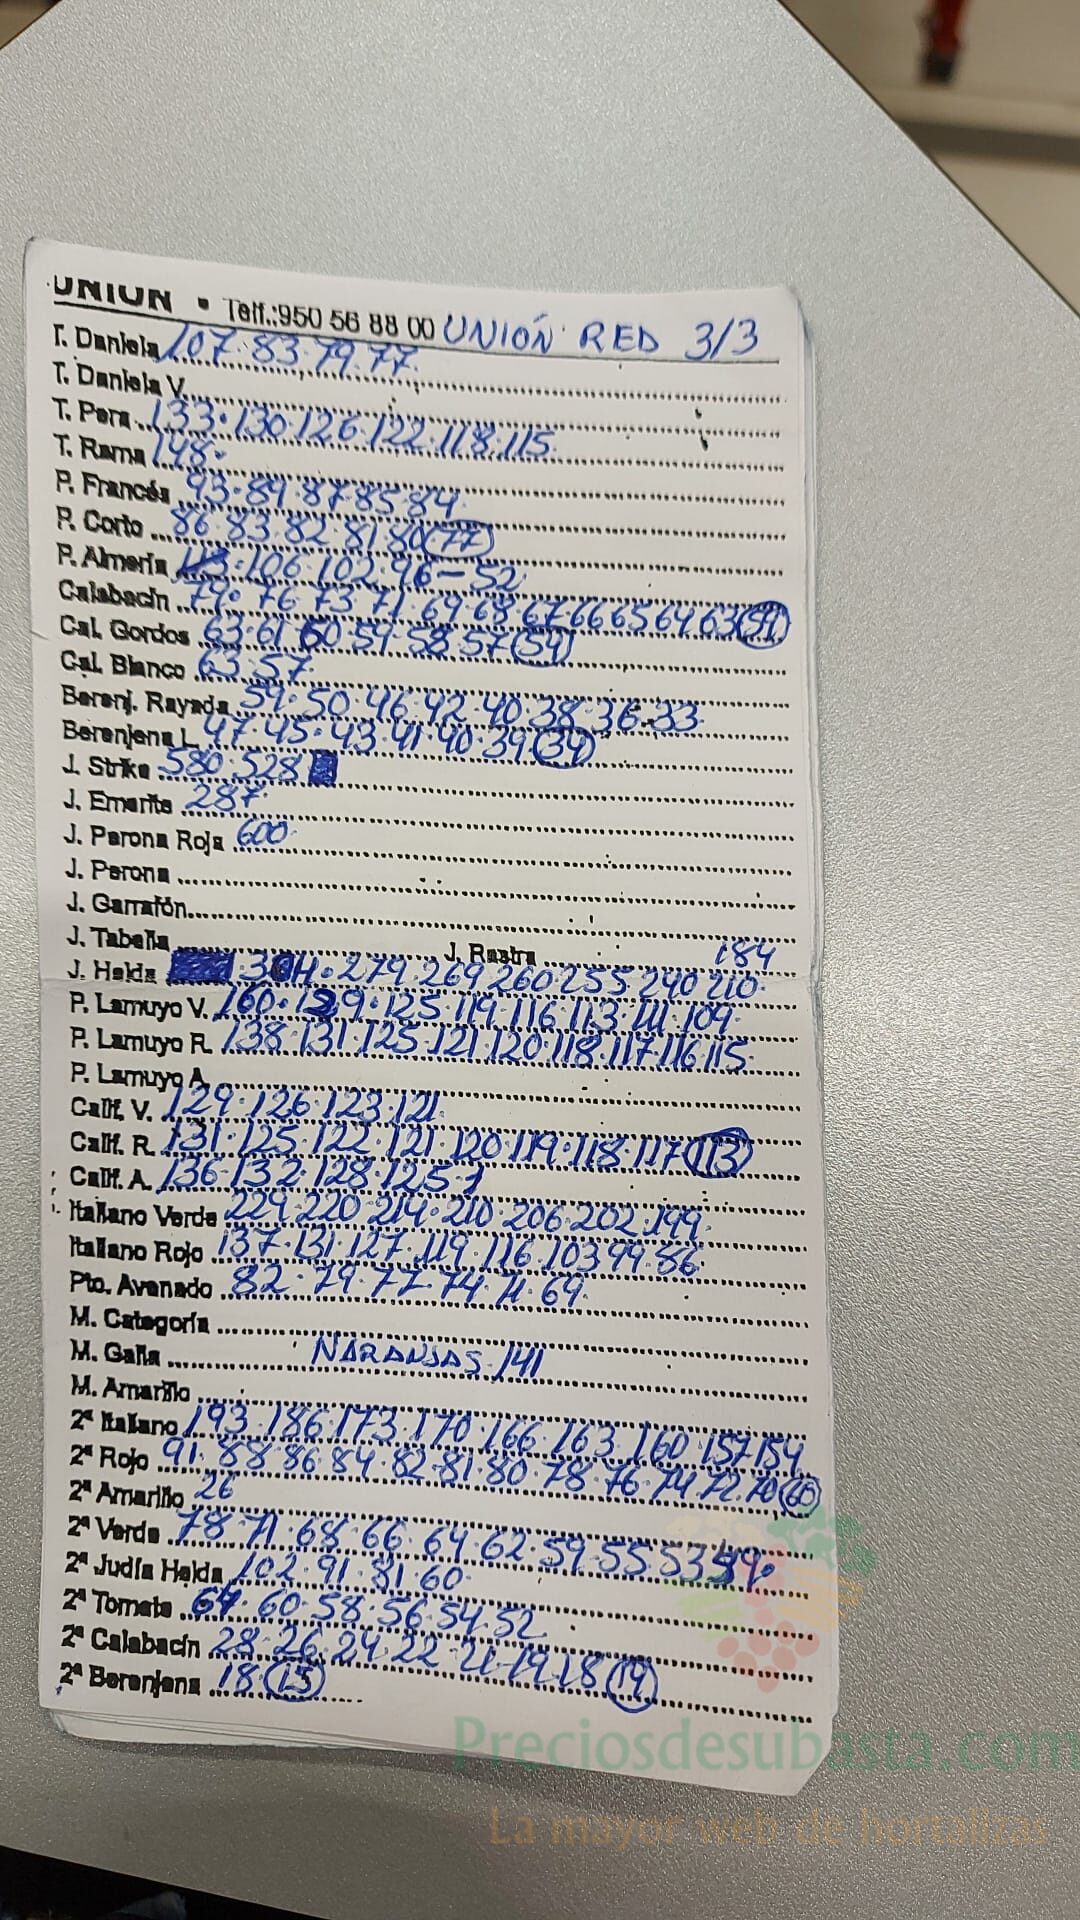 UNION • Telf.:950 56 88 00 UNIÓN RED 3/3
T. Daniela 107.83.79.77.
T. Daniela V.
T. Pera 133.130.126.122.118.115
T. Rama 148.
P. Francés 93.89.87.85.84
P. Corto 86.83.82.81.80(77)
P. Almería 113.106.102.96-52
Calabacín 79.76.73.71.69.68.67.66 65 64 63(59)
Cal. Gordos 63.61.60.59.58.57(54)
Cal. Blanco 63.57.
Berenj. Rayada 59.50.46.42.40.38.36.33
Berenjena L. 47.45.43.41.40.39(34)
J. Strike 580.528
J. Emerite 287.
J. Perona Roja 600.
J. Perona
J. Garrafón
J. Tabella J. Rastra 184
J. Helda 304.279.269 260.255.240 210.
P. Lamuyo V. 160.129.125.119.116.113.111.109.
P. Lamuyo R. 138.131.125.121.120.118.117.116.115
P. Lamuyo A.
Calif. V. 129.126.123.121.
Calif. R. 131.125.122.121.120.119.118.117(113)
Calif. A. 136.132.128.125.1
Italiano Verde 229.220.214.210.206.202.199.
Italiano Rojo 137.131.127.119.116.103 99.86.
Pto. Avanado 82.79.77.74.71.69.
M. Categoría
M. Galia NARANJAS.141
M. Amarillo
2ª Italiano 193.186.173.170.166.163.160.157 154
2ª Rojo 91.88.86.84.82.81.80.78.76.74.72.70(65)
2ª Amarillo 26
2ª Verde 78.71.68.66.64.62.59.55.53
2ª Judía Helda 102.91.81.60.
2ª Tomate 64.60.58.56.54.52
2ª Calabacín 28.26.24.22.21.19.18(14)
2ª Berenjena 18.(15)
Preciosdesubasta.com
La mayor web de hortalizas